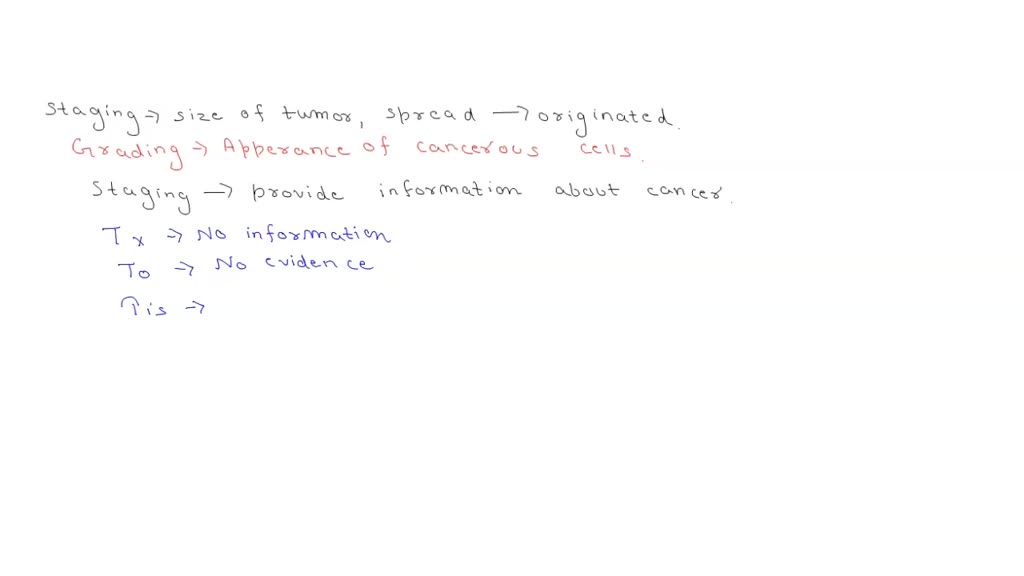 Staging → size of tumor, spread → originated.
Grading → Apperance of cancerous cells.
Staging → provide information about cancer.
Tx → No information
To → No evidence
Tis →